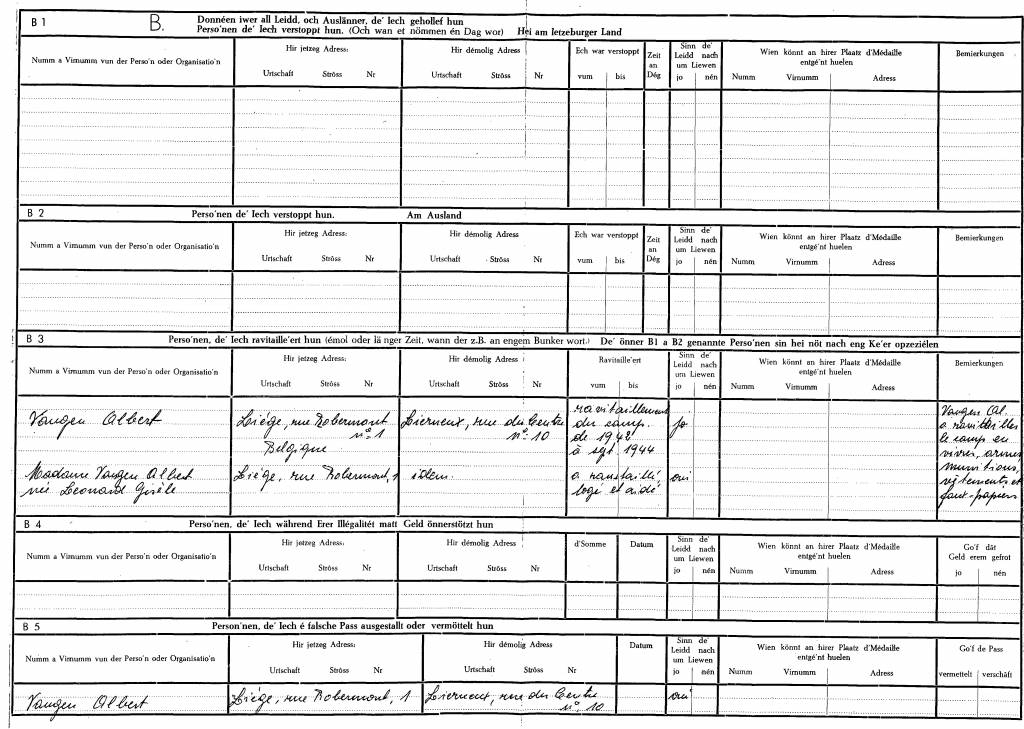 B 1 B. Donnéen iwer all Leidd, och Auslänner, de' Iech gehollef hun
Perso'nen de' Iech verstoppt hun. (Och wan et nömmen én Dag wor) Hei am letzeburger Land
Numm a Virnumm vun der Perso'n oder Organisatio'n
Hir jetzeg Adress:
Urtschaft Ströss Nr
Hir démolig Adress
Urtschaft Ströss Nr
Ech war verstoppt
vum bis
Zeit
an
Dég
Sinn de'
Leidd nach
um Liewen
jo nén
Wien könnt an hirer Plaatz d'Médaille
entgé'nt huelen
Numm Virnumm Adress
Bemierkungen
B 2 Perso'nen de' Iech verstoppt hun. Am Ausland
Numm a Virnumm vun der Perso'n oder Organisatio'n
Hir jetzeg Adress:
Urtschaft Ströss Nr
Hir démolig Adress
Urtschaft Ströss Nr
Ech war verstoppt
vum bis
Zeit
an
Dég
Sinn de'
Leidd nach
um Liewen
jo nén
Wien könnt an hirer Plaatz d'Médaille
entgé'nt huelen
Numm Virnumm Adress
Bemierkungen
B 3 Perso'nen, de' Iech ravitaille'ert hun (émol oder länger Zeit, wann der z.B. an engem Bunker wort.) De' önner B1 a B2 genannte Perso'nen sin hei nöt nach eng Ke'er opzeziélen
Numm a Virnumm vun der Perso'n oder Organisatio'n
Hir jetzeg Adress:
Urtschaft Ströss Nr
Hir démolig Adress
Urtschaft Ströss Nr
Ravitaille'ert
vum bis
Sinn de'
Leidd nach
um Liewen
jo nén
Wien könnt an hirer Plaatz d'Médaille
entgé'nt huelen
Numm Virnumm Adress
Bemierkungen
Vangen Albert
Liége, rue Robermont
n° 1
Belgique
Lierneux, rue du Centre
n° 10
ravitaillement
du camp.
de 1942
à sept 1944
jo
Vangen Al.
a ravitaillé
le camp en
vivres, armes
munitions,
vêtements et
faux-papiers
Madame Vangen Albert
née Leonard Gisèle
Liége, rue Robermont, 1
idem.
a ravitaillé,
logé et aidé
oui
B 4 Perso'nen, de' Iech während Erer Illégalitét matt Geld önnerstötzt hun
Numm a Virnumm vun der Perso'n oder Organisatio'n
Hir jetzeg Adress:
Urtschaft Ströss Nr
Hir démolig Adress
Urtschaft Ströss Nr
d'Somme
Datum
Sinn de'
Leidd nach
um Liewen
jo nén
Wien könnt an hirer Plaatz d'Médaille
entgé'nt huelen
Numm Virnumm Adress
Go'f dât
Geld erem gefrot
jo nén
B 5 Person'nen, de' Iech é falsche Pass ausgestallt oder vermöttelt hun
Numm a Virnumm vun der Perso'n oder Organisatio'n
Hir jetzeg Adress:
Urtschaft Ströss Nr
Hir démolig Adress
Urtschaft Ströss Nr
Datum
Sinn de'
Leidd nach
um Liewen
jo nén
Wien könnt an hirer Plaatz d'Médaille
entgé'nt huelen
Numm Virnumm Adress
Go'f de Pass
vermettelt verschäft
Vangen Albert
Liége, rue Robermont, 1
Lierneux, rue du Centre
n° 10
oui